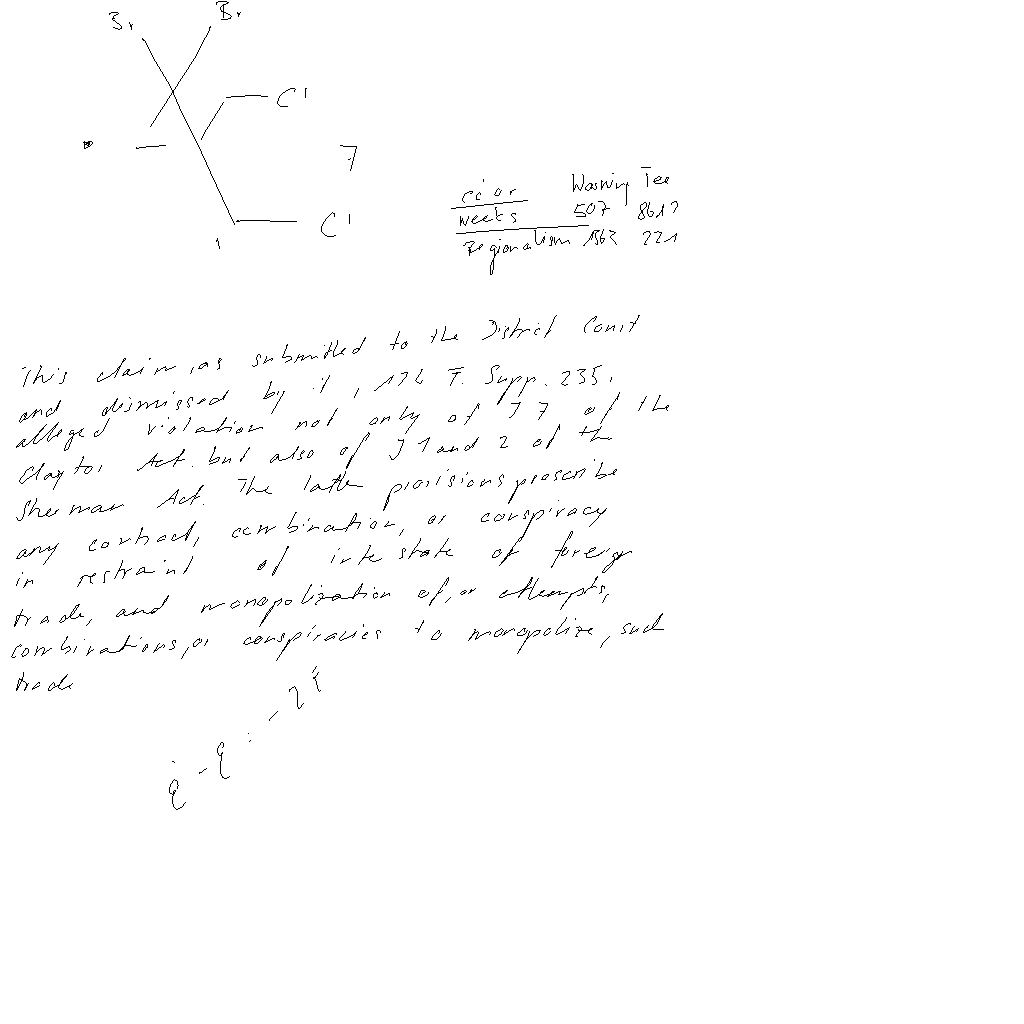 Br Br
Cl
Cl
Washing Tee
weeks 507
Regionalism 1362 221
This claim, as submitted to the District Court
and dismissed by it, 174 F. Supp. 235,
alleged violation not only of § 7 of the
Clayton Act but also of § 1 and 2 of the
Sherman Act. The latter provisions proscribe
any contract, combination, or conspiracy
in restraint of interstate or foreign
trade, and monopolization of, or attempts,
combinations, or conspiracies to monopolize, such
trade